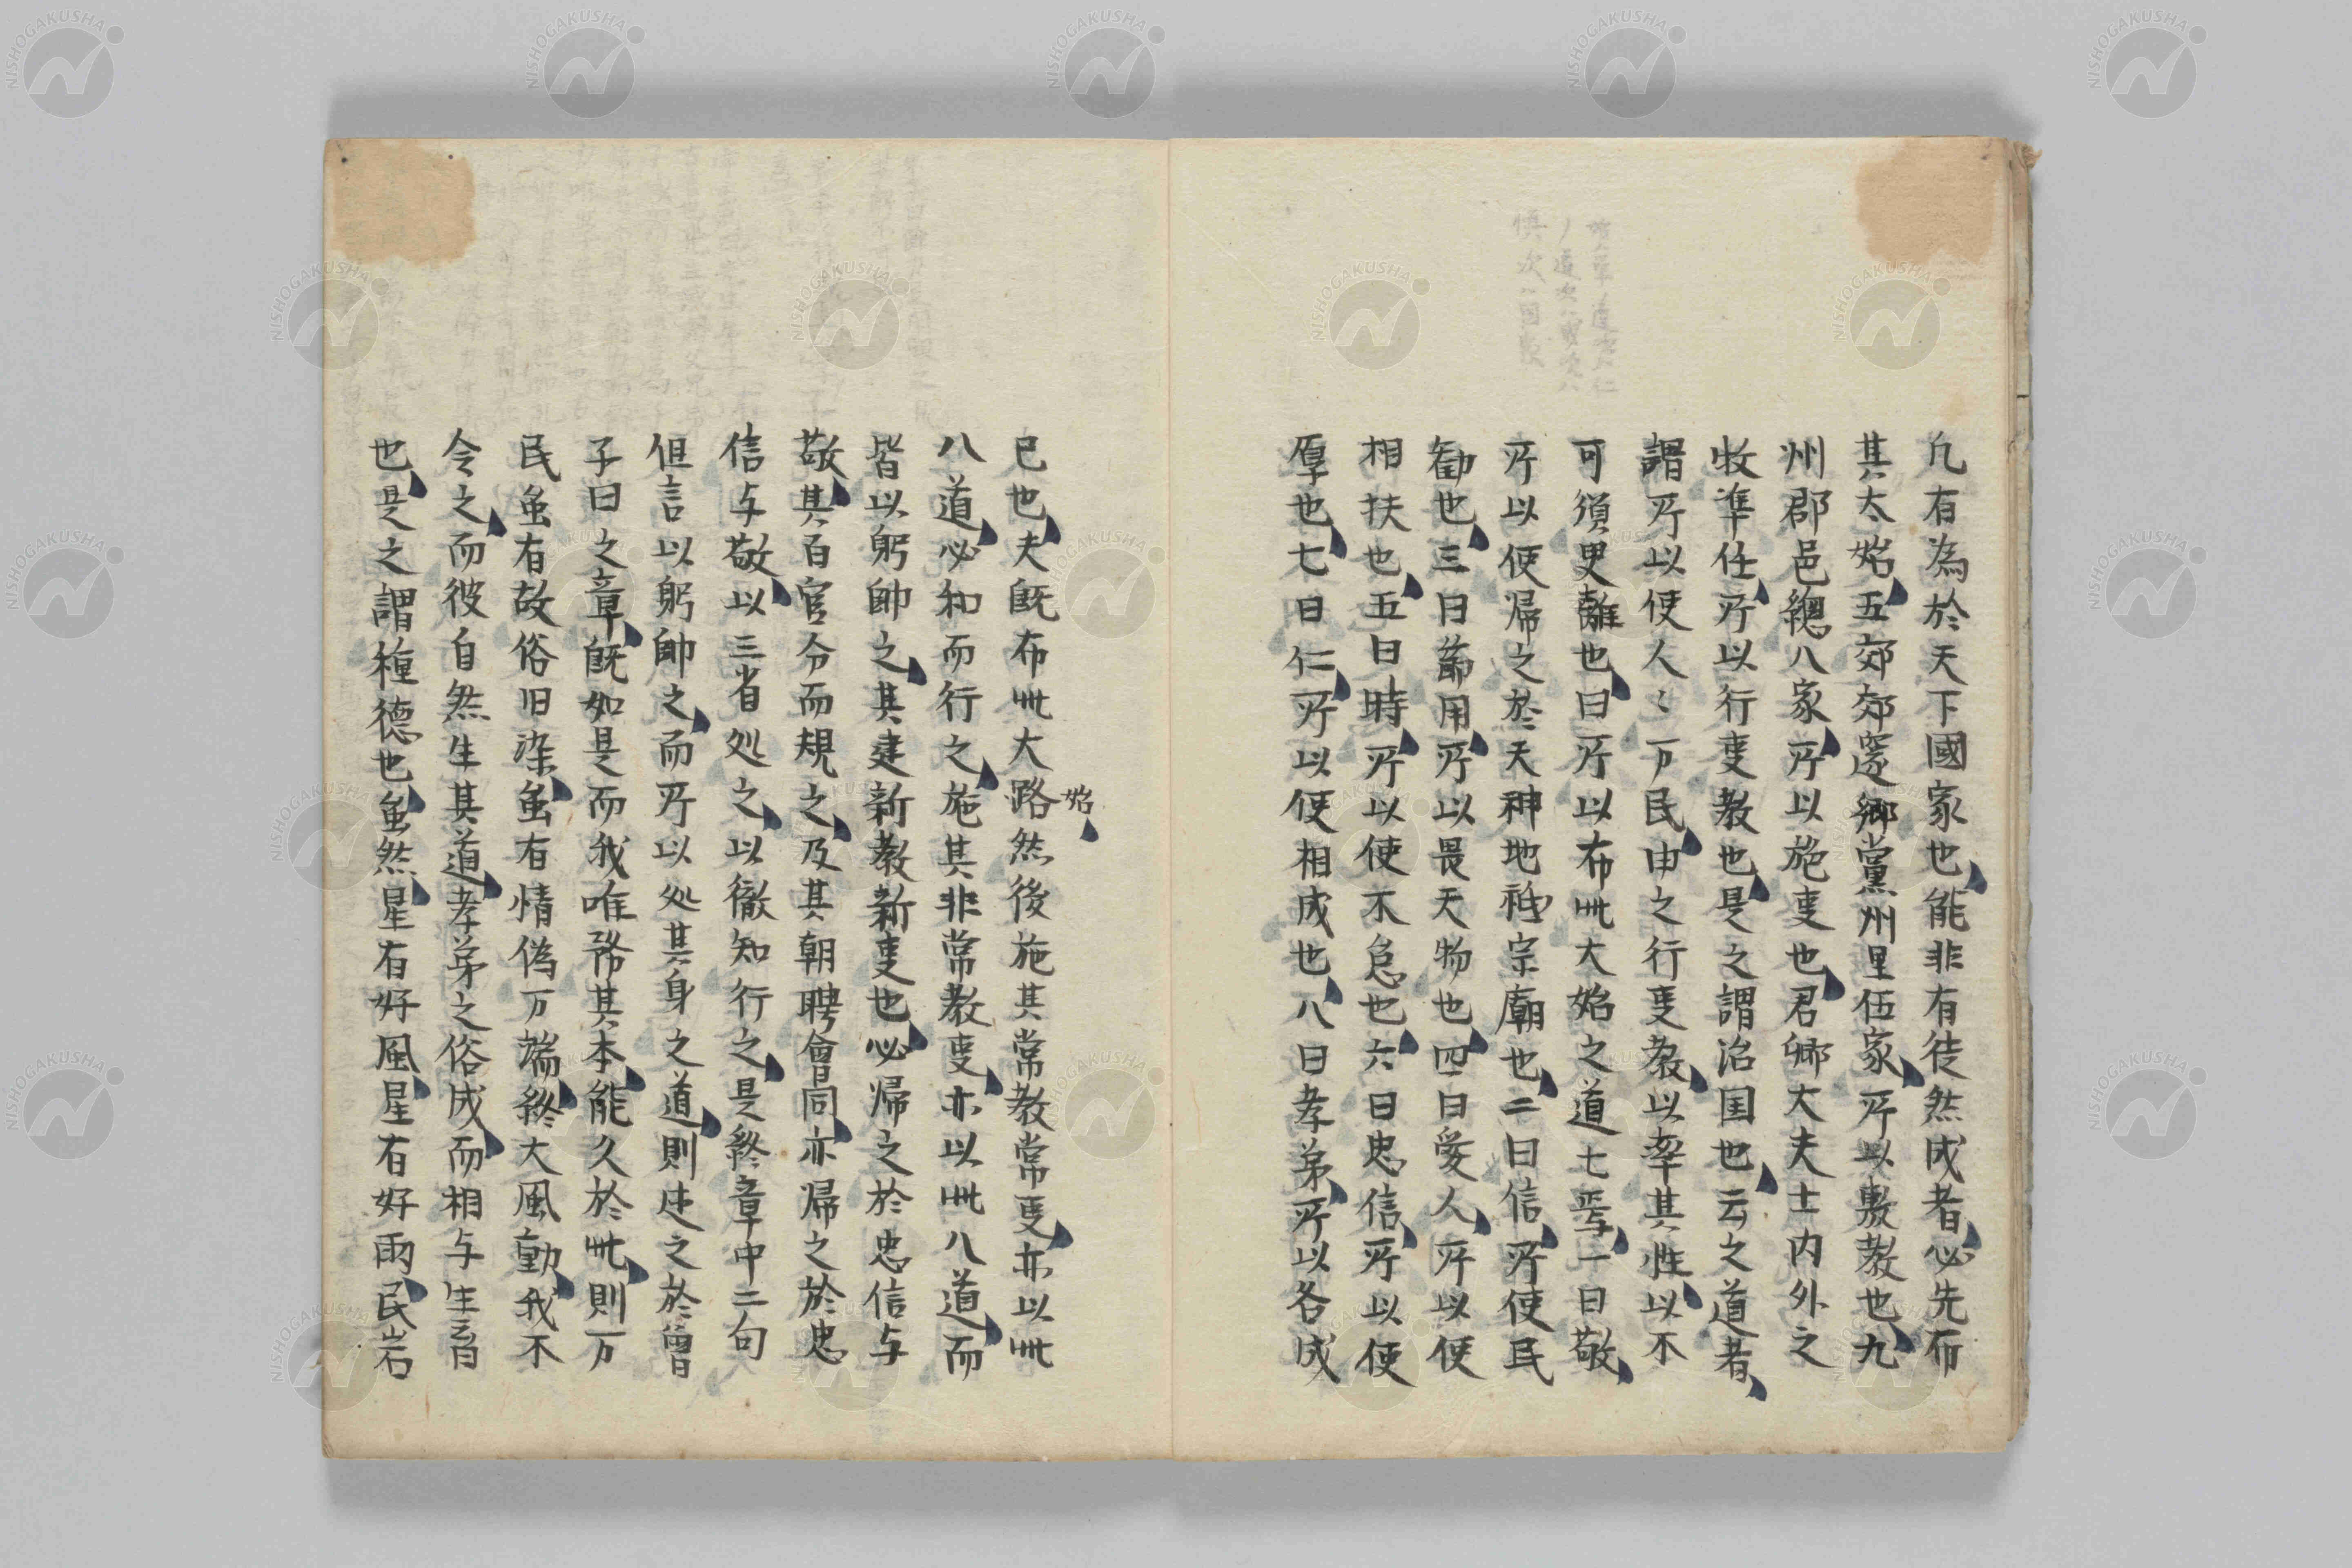 凢有為於天下國家也能非有徒然成者必先布
其太始五郊郊遂鄉黨州里伍家所以敷教也九
州郡邑總八家所以施叓也君卿大夫士内外之
牧準任所以行叓教也是之謂治国也云之道者
謂所以使人〻万民由之行叓教以率其性以不
可須臾離也曰所以布此大始之道七焉一曰敬
所以使帰之於天神地祇宗廟也二曰信所使民
勸也三曰節用所以畏天物也四曰愛人所以使
相扶也五曰時所以使不怠也六曰忠信所以使
厚也七曰仁所以使相成也八曰孝弟所以各成
已也夫既布此大路始然後施其常教常叓亦以此
八道必和而行之施其非常教叓亦以此八道而
皆以躬帥之其建新教新叓也必帰之於忠信与
敬其百官令而規之及其朝聘會同亦帰之於忠
信与敬以三省処之以徹知行之是終章中二句
但言以躬帥之而所以処其身之道則述之於曽
子曰之章既如是而我唯務其本能久於此則万
民虽有故俗旧染虽有情偽万端終大風動我不
令之而彼自然生其道孝弟之俗成而相与生畜
也是之謂種德也虽然星有好風星有好雨民岩
NISHOGAKUSHA